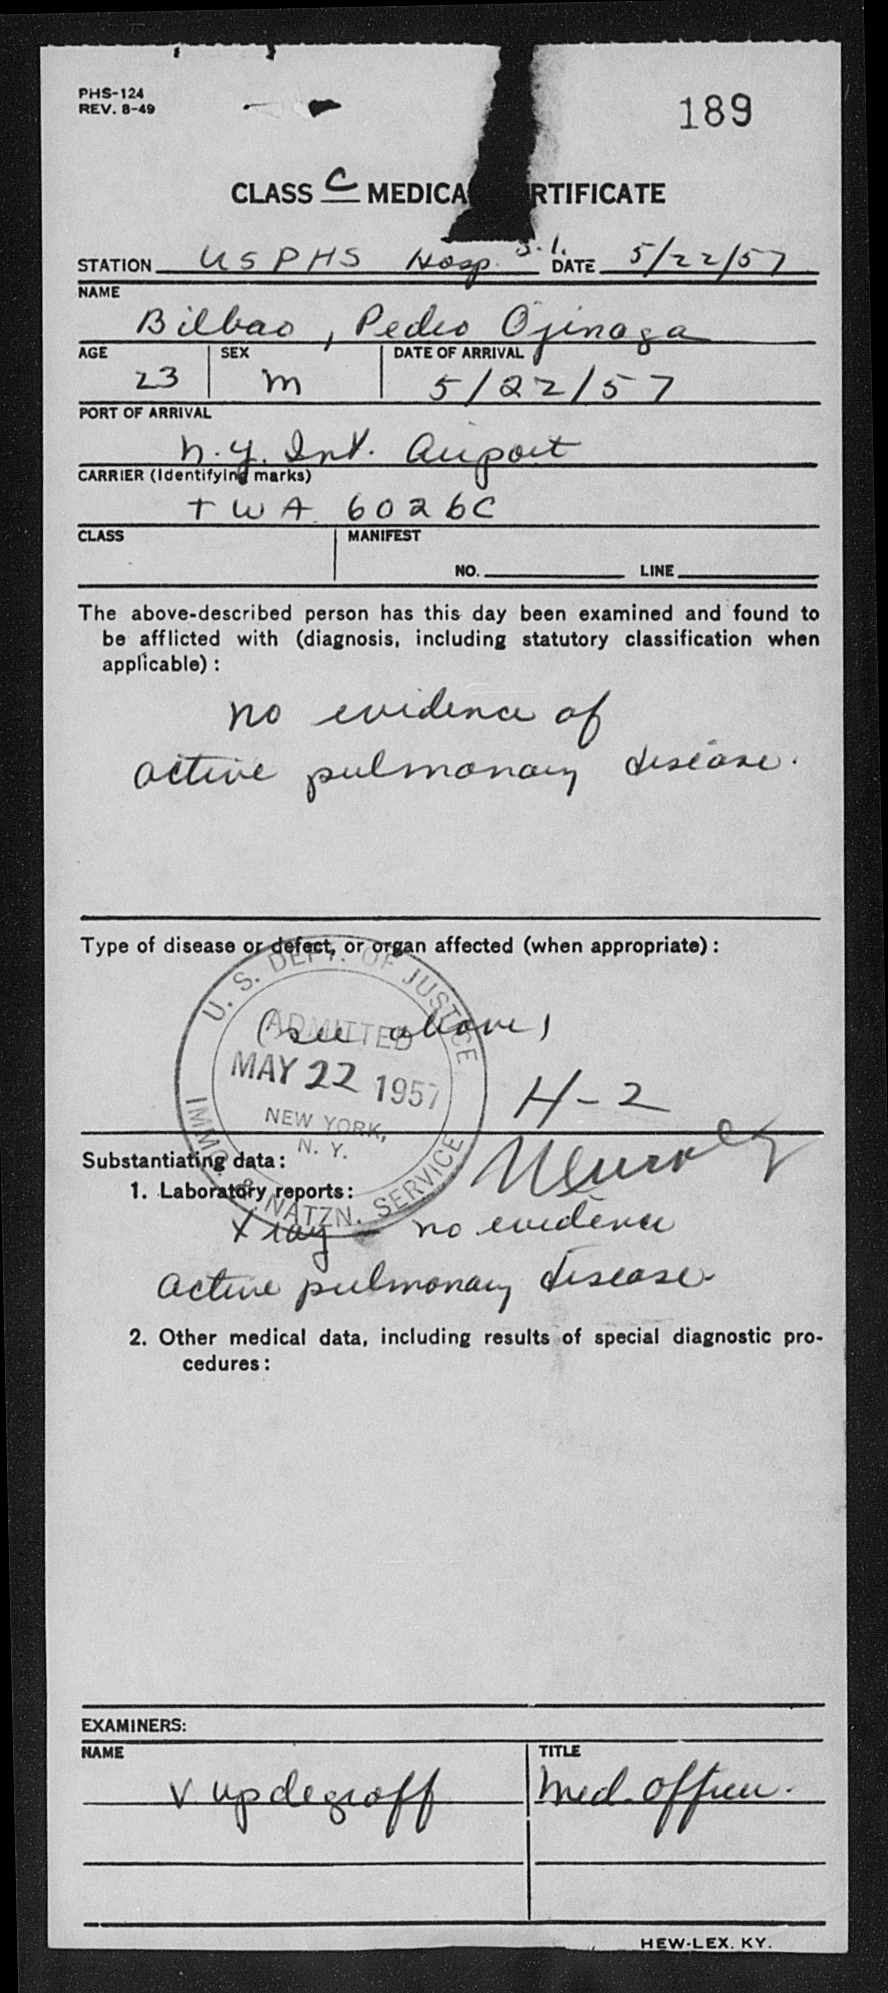 PHS-124
REV. 8-49
189
CLASS C MEDICA RTIFICATE
STATION USPHS Hosp. S.I. DATE 5/22/57
NAME
Bilbao, Pedro Ojinaga
AGE SEX DATE OF ARRIVAL
23 M 5/22/57
PORT OF ARRIVAL
N.Y. Int. Airport
CARRIER (Identifying marks)
TWA 6026C
CLASS MANIFEST
NO. LINE
The above-described person has this day been examined and found to
be afflicted with (diagnosis, including statutory classification when
applicable):
no evidence of
active pulmonary disease.
Type of disease or defect, or organ affected (when appropriate):
U. S. DEPT. OF JUSTICE
ADMITTED
(see above)
MAY 22 1957
NEW YORK,
N. Y.
IMMG. & NATZN. SERVICE
H-2
Substantiating data:
1. Laboratory reports:
X ray - no evidence
active pulmonary disease.
2. Other medical data, including results of special diagnostic pro-
cedures:
EXAMINERS:
NAME TITLE
V. Updegraff Med. Officer.
HEW-LEX. KY.